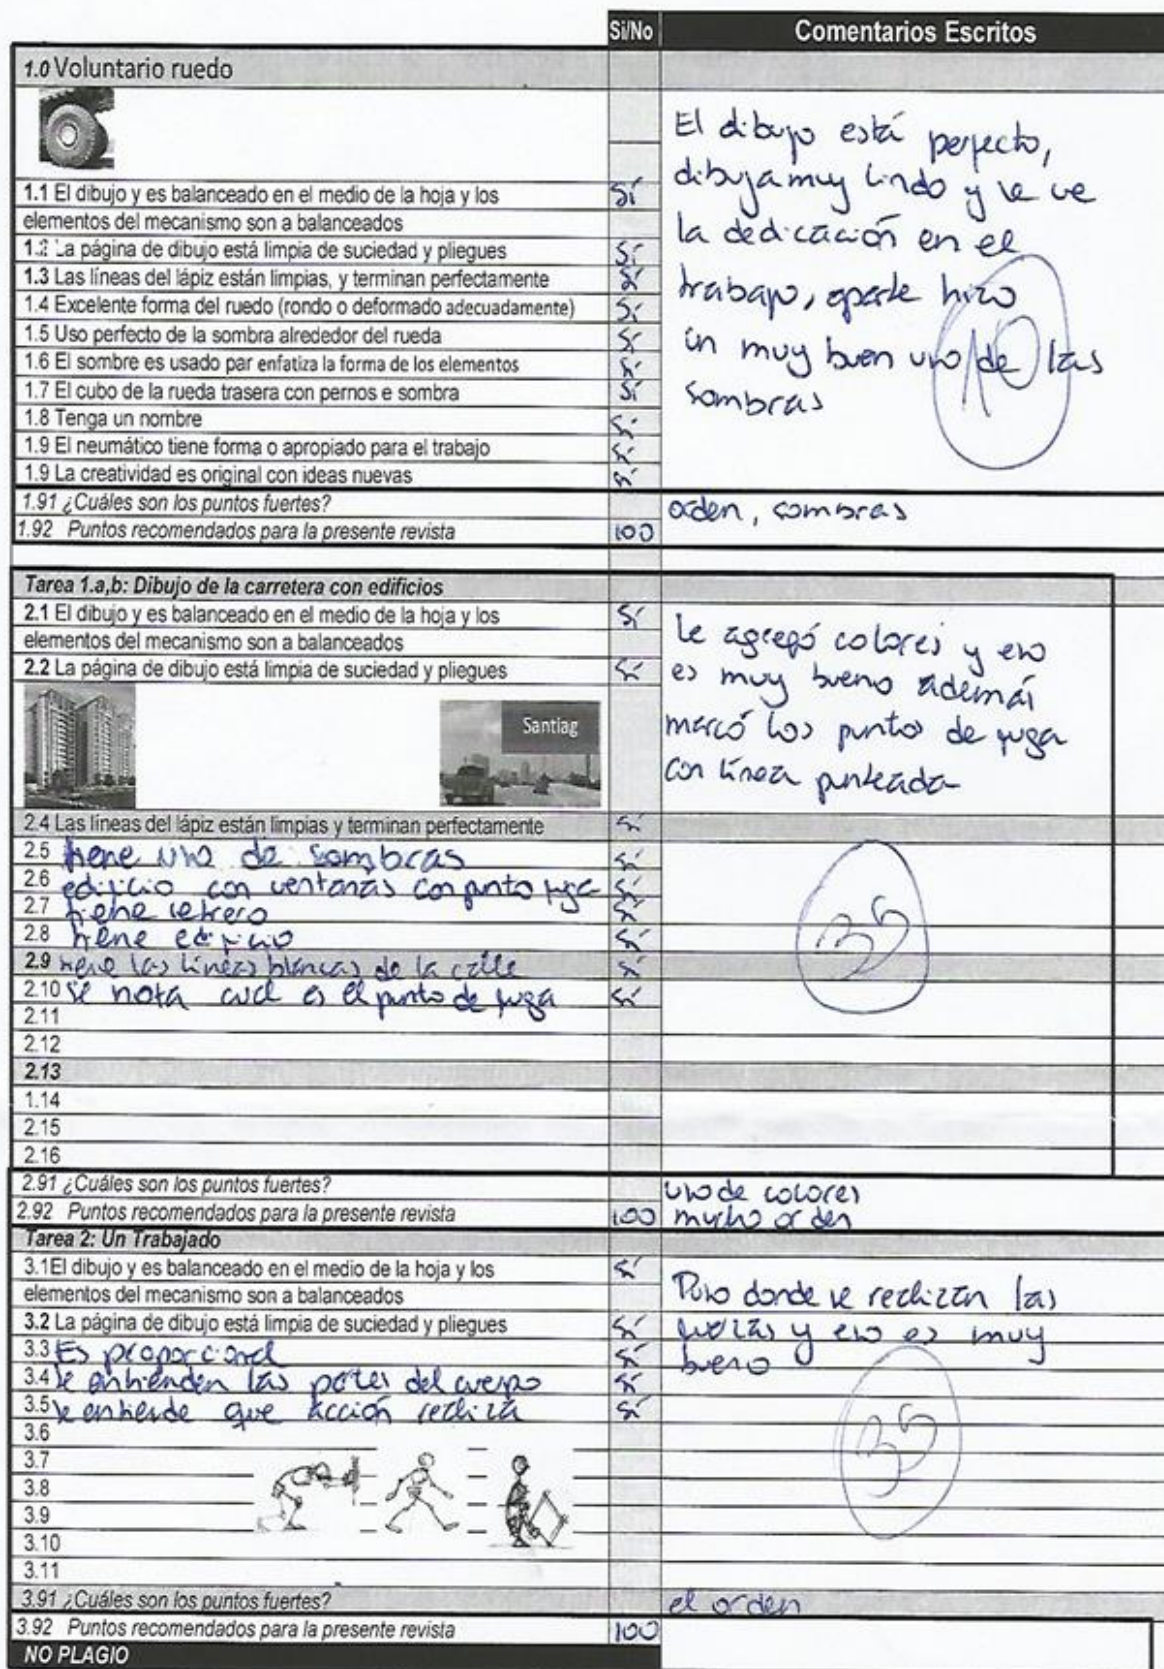 Si/No Comentarios Escritos
1.0 Voluntario ruedo
El dibujo está perfecto,
dibuja muy lindo y se ve
la dedicación en el
trabajo, aparte hizo
un muy buen uso de las
sombras
10
1.1 El dibujo y es balanceado en el medio de la hoja y los Sí
elementos del mecanismo son a balanceados
1.2 La página de dibujo está limpia de suciedad y pliegues Sí
1.3 Las líneas del lápiz están limpias, y terminan perfectamente Sí
1.4 Excelente forma del ruedo (rondo o deformado adecuadamente) Sí
1.5 Uso perfecto de la sombra alrededor del rueda Sí
1.6 El sombre es usado par enfatiza la forma de los elementos Sí
1.7 El cubo de la rueda trasera con pernos e sombra Sí
1.8 Tenga un nombre Sí
1.9 El neumático tiene forma o apropiado para el trabajo Sí
1.9 La creatividad es original con ideas nuevas Sí
1.91 ¿Cuáles son los puntos fuertes? orden, sombras
1.92 Puntos recomendados para la presente revista 100
Tarea 1.a,b: Dibujo de la carretera con edificios
2.1 El dibujo y es balanceado en el medio de la hoja y los Sí
elementos del mecanismo son a balanceados
2.2 La página de dibujo está limpia de suciedad y pliegues Sí
Le agregó colores y eso
es muy bueno además
marcó los puntos de fuga
con línea punteada
Santiag
2.4 Las líneas del lápiz están limpias y terminan perfectamente Sí
2.5 tiene uso de sombras Sí
2.6 edificio con ventanas con punto fuga Sí
2.7 tiene letrero Sí
2.8 tiene edificio Sí
2.9 tiene las líneas blancas de la calle Sí
2.10 se nota cual es el punto de fuga Sí
35
2.11
2.12
2.13
1.14
2.15
2.16
2.91 ¿Cuáles son los puntos fuertes? uso de colores
2.92 Puntos recomendados para la presente revista 100 mucho orden
Tarea 2: Un Trabajado
3.1 El dibujo y es balanceado en el medio de la hoja y los Sí
elementos del mecanismo son a balanceados
3.2 La página de dibujo está limpia de suciedad y pliegues Sí
Puso donde se realizan las
fuerzas y eso es muy
bueno
3.3 Es proporcional Sí
3.4 se entienden las partes del cuerpo Sí
3.5 se entiende que acción realiza Sí
35
3.6
3.7
3.8
3.9
3.10
3.11
3.91 ¿Cuáles son los puntos fuertes? el orden
3.92 Puntos recomendados para la presente revista 100
NO PLAGIO